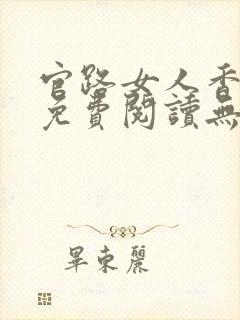 官路女人香
免費閱讀無
畢東麗